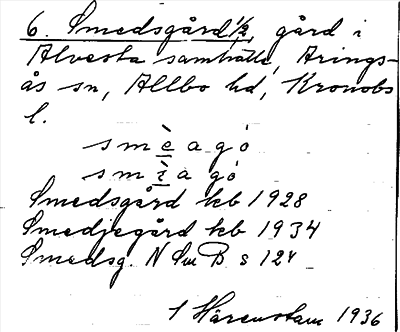 6. Smedsgård 1/2, gård i
Alvesta samhälle, Arings-
ås sn, Allbo hd, Kronobs
l.
smè̲a gó
smì̲a gó
Smedsgård kb 1928
Smedjegård kb 1934
Smedsg. N Sm B s 124
1936